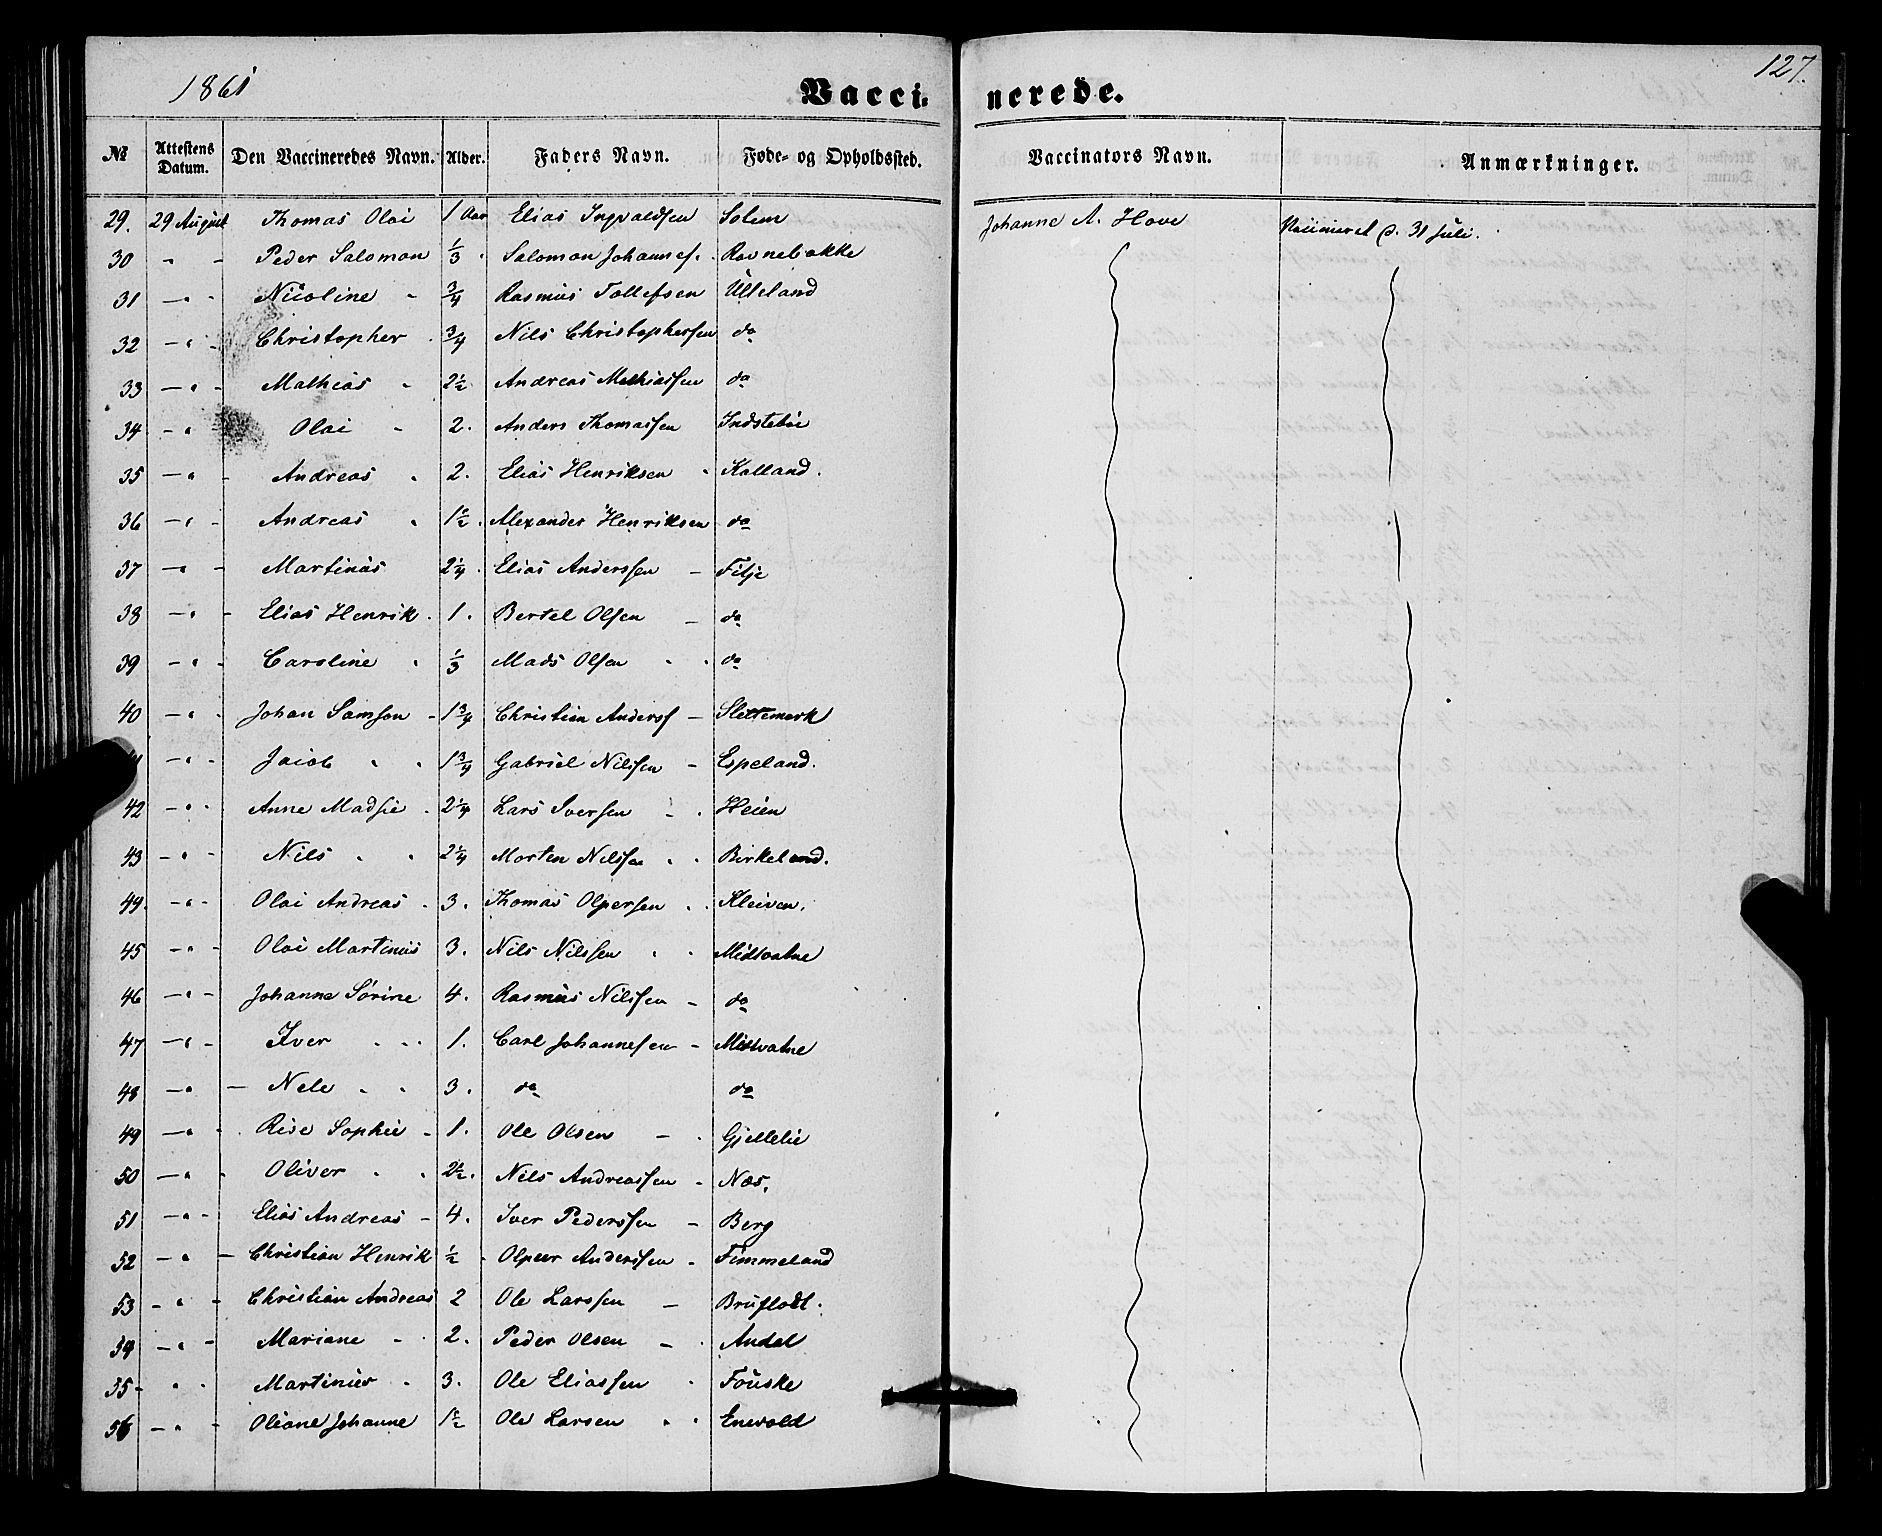 1861
Vacci- nerede.
127.
№ Attestens Datum. Den Vaccineredes Navn. Alder. Faders Navn. Føde- og Opholdssted. Vaccinators Navn. Anmærkninger.
29. 29 August Thomas Olai 1 Aar Elias Ingvaldsen Solem Johanne A. Hove d. 31 Juli.
30 " - Peder Salomon 1/3 Salomon Johannes. Ravnebakke
31 - " - Nicoline 3/4 Rasmus Tollefsen Ulleland
32 - " - Christopher 3/4 Nils Christophersen do
33 - " - Mathias 2 1/2 Andreas Mathiassen do
34 - " - Olai 2. Anders Thomassen Indstebøe
35 - " - Andreas 2. Elias Henriksen Kalland.
36 - " - Andreas 1 1/2 Alexander Henriksen do
37 - " - Martinus 2 1/4 Elias Anderssen - Filje
38 - " - Elias Henrik 1. Bertel Olsen - do
39 - " - Caroline 1/3 Mads Olsen do
40 - " - Johan Samson - 1 3/4 Christian Anders - Slettemark
Jacob 1 3/4 Gabriel Nilssen - Espeland.
42 - " - Anne Madsie 2 1/4 Lars Iversen Heien
43 - " - Nils 2 1/4 Morten Nilssen Birkeland.
44. - " - Olai Andreas 3. Thomas Olpersen Kleiven.
45 - " - Olai Martinus 3. Nils Nilssen Midtvatne
46 - " - Johanne Sørine 4. Rasmus Nilssen - do
47 - " - Iver 1. Carl Johannesen - Midtvatne
48 - " - Nele 3. do do
49 - " Sophie - 1. Ole Olsen - Gjellelie
50 - " Oliver 2 1/2. Nils Andreassen - Næs.
51 - " - Elias Andreas - 4. Iver Pederssen - Berg
52 - " - Christian Henrik 1/2 - Olpeer Anderssen - Fimmeland
53 - " - Christian Andreas 2 Ole Larssen - Bruflodt.
54 - " - Mariane - 2. Peder Olsen - Andal
55 - " - Martinus 3. Ole Eliassen Fouske
56 - " - Oliane Johanne 1 1/2 Ole Larsen Enevold